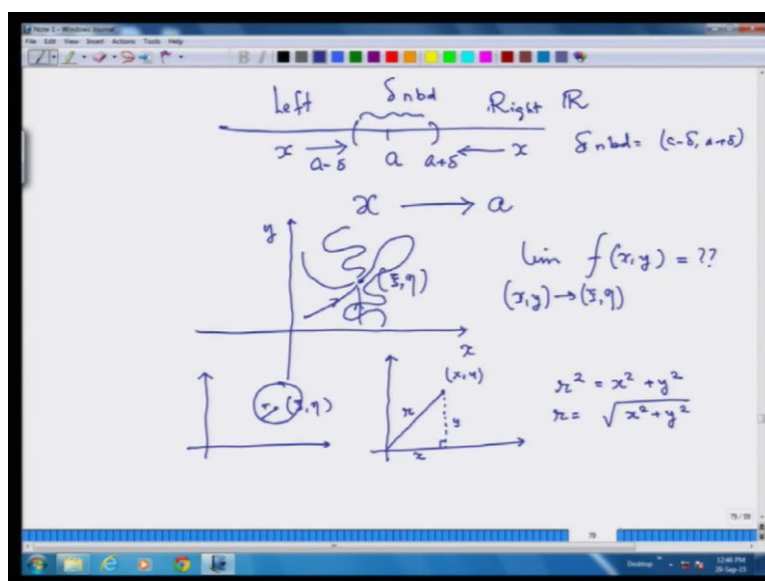 Note 1 - Windows Journal
File Edit View Insert Actions Tools Help
B I
Left δ nbd Right ℝ
x a-δ a a+δ x δ nbd = (a-δ, a+δ)
x → a
y
(ξ,η)
lim f(x,y) = ??
(x,y)→(ξ,η)
x
r (ξ,η)
(x,y)
r y
x
r² = x² + y²
r = √x²+y²
79 / 99
79
Desktop
12:46 PM